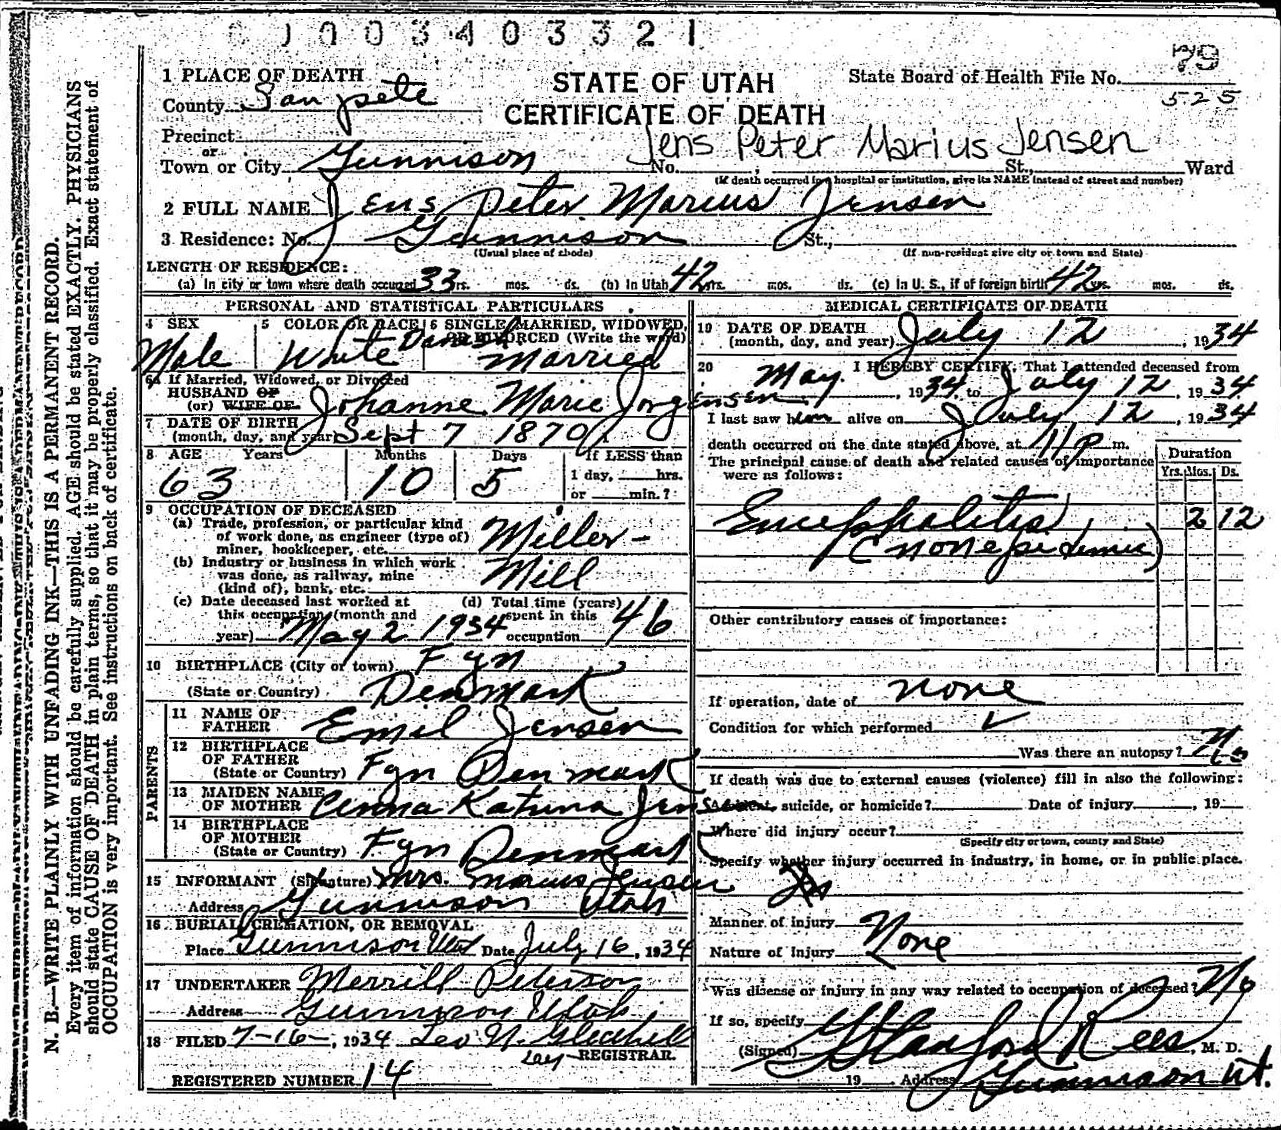 0003403321
79
1 PLACE OF DEATH
STATE OF UTAH
State Board of Health File No.
County Sanpete
525
CERTIFICATE OF DEATH
Precinct
or
Jens Peter Marius Jensen
Town or City Gunnison No. St., Ward
(If death occurred in a hospital or institution, give its NAME instead of street and number)
2 FULL NAME Jens Peter Marius Jensen
3 Residence: No. Gunnison St.,
(Usual place of abode) (If non-resident give city or town and State)
LENGTH OF RESIDENCE:
(a) In city or town where death occurred 33 yrs. mos. ds. (b) In Utah 42 yrs. mos. ds. (c) In U. S., if of foreign birth 42 yrs. mos. ds.
PERSONAL AND STATISTICAL PARTICULARS
4 SEX 5 COLOR OR RACE 6 SINGLE, MARRIED, WIDOWED, OR DIVORCED (Write the word)
Male White Danish Married
6a If Married, Widowed, or Divorced
HUSBAND OF
(or) WIFE OF Johanne Marie Jorgensen
7 DATE OF BIRTH
(month, day, and year) Sept 7 1870
8 AGE Years Months Days If LESS than
1 day, hrs.
63 10 5 or min.?
9 OCCUPATION OF DECEASED
(a) Trade, profession, or particular kind
of work done, as engineer (type of)
miner, bookkeeper, etc. Miller
(b) Industry or business in which work
was done, as railway, mine
(kind of), bank, etc. Mill
(c) Date deceased last worked at
this occupation (month and
year) May 2 1934
(d) Total time (years)
spent in this
occupation 46
10 BIRTHPLACE (City or town) Fyn
(State or Country) Denmark
PARENTS
11 NAME OF
FATHER Emil Jensen
12 BIRTHPLACE
OF FATHER
(State or Country) Fyn Denmark
13 MAIDEN NAME
OF MOTHER Anna Katrina Jensen
14 BIRTHPLACE
OF MOTHER
(State or Country) Fyn Denmark
15 INFORMANT (Signature) Mrs. Marius Jensen
Address Gunnison Utah
16 BURIAL, CREMATION, OR REMOVAL
Place Gunnison Utah Date July 16, 1934
17 UNDERTAKER Merrill Peterson
Address Gunnison Utah
18 FILED 7-16-, 1934 Leo N. Gledhill
REGISTRAR.
REGISTERED NUMBER 14
MEDICAL CERTIFICATE OF DEATH
19 DATE OF DEATH
(month, day, and year) July 12, 1934
20 I HEREBY CERTIFY, That I attended deceased from
May, 1934, to July 12, 1934
I last saw him alive on July 12, 1934
death occurred on the date stated above, at 11 p m.
The principal cause of death and related causes of importance
were as follows:
Duration
Yrs. Mos. Ds.
Encephalitis 2 12
(nonepidemic)
Other contributory causes of importance:
If operation, date of none
Condition for which performed
Was there an autopsy? No
If death was due to external causes (violence) fill in also the following:
Accident, suicide, or homicide? Date of injury, 19
Where did injury occur?
(Specify city or town, county and State)
Specify whether injury occurred in industry, in home, or in public place.
Manner of injury
Nature of injury None
Was disease or injury in any way related to occupation of deceased? No
If so, specify
(Signed) G Stanford Rees, M. D.
19 Address Gunnison Ut.
N. B.—WRITE PLAINLY WITH UNFADING INK—THIS IS A PERMANENT RECORD.
Every item of information should be carefully supplied. AGE should be stated EXACTLY. PHYSICIANS
should state CAUSE OF DEATH in plain terms, so that it may be properly classified. Exact statement of
OCCUPATION is very important. See instructions on back of certificate.